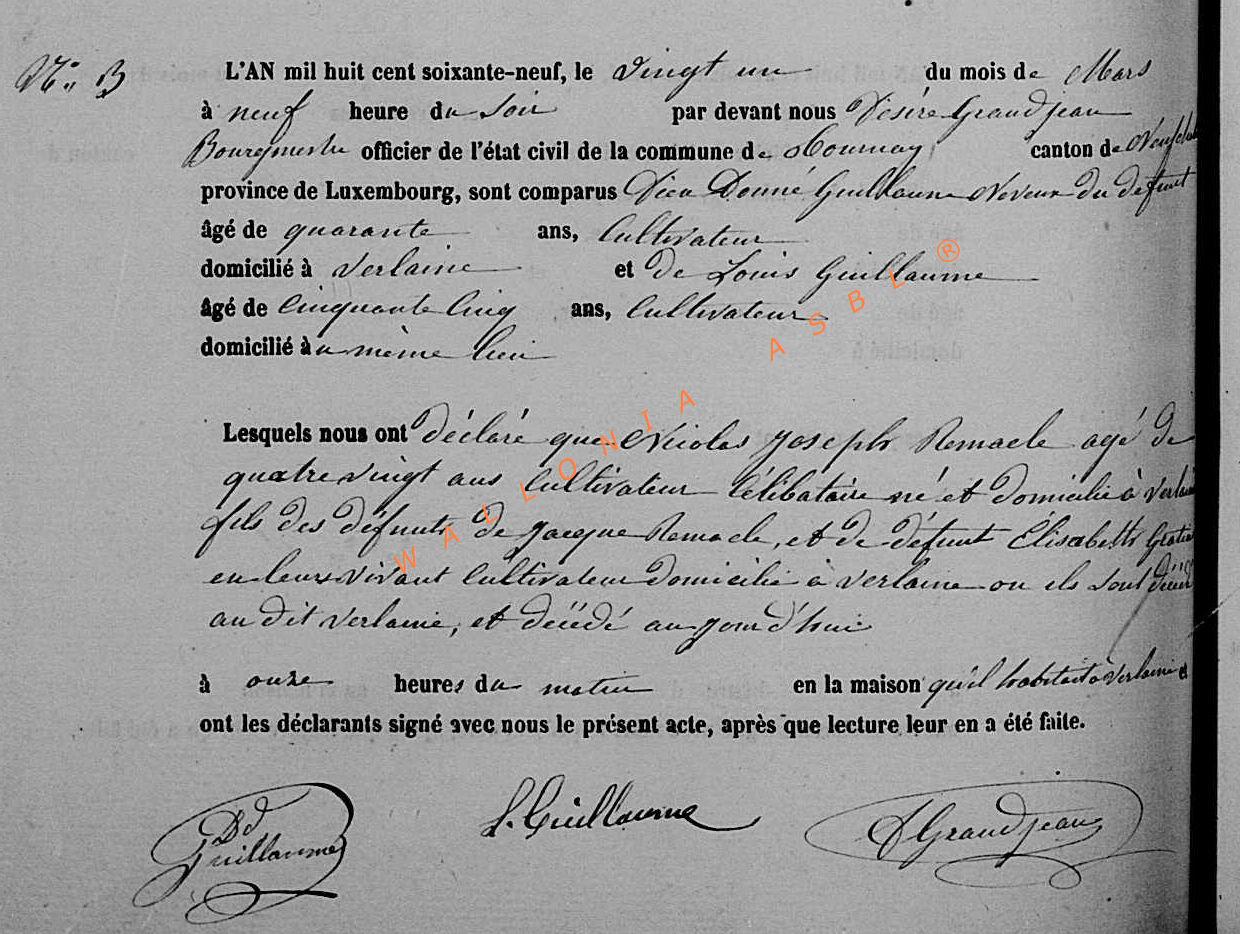 N° 3
L'AN mil huit cent soixante-neuf, le vingt un du mois de Mars
à neuf heure du soir par devant nous Désiré Grandjean
Bourgmestre officier de l'état civil de la commune de Tournay canton de Neufchat
province de Luxembourg, sont comparus Dieu Donné Guillaume Neveux du défunt
âgé de quarante ans, Cultivateur
domicilié à Verlaine et de Louis Guillaume
âgé de Cinquante Cinq ans, Cultivateur
domicilié au même lieu
Lesquels nous ont déclaré que Nicolas Joseph Remacle agé de
quatre vingt ans Cultivateur Célibataire né et domicilié à Verlaine
fils des défunts de Jacque Remacle, et de défunt Élisabeth Gratia
en leurs vivant Cultivateur domicilié à Verlaine ou ils sont
au dit Verlaine, et décédé au jour d'hui
à onze heures du matin en la maison qu'il habitait à Verlaine et
ont les déclarants signé avec nous le présent acte, après que lecture leur en a été faite.
Dd Guillaume L. Guillaume D Grandjean
WALLONIA ASBL ®